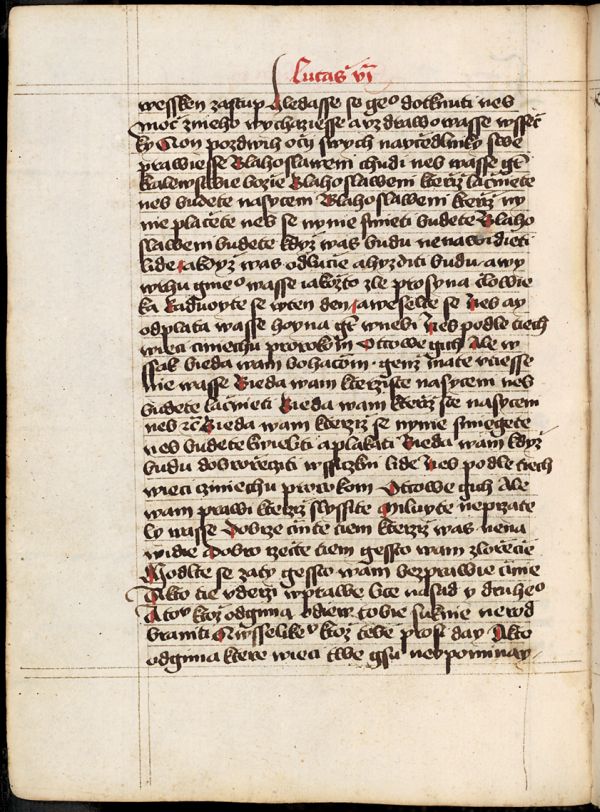 Lucas vi
wessken zastup hledasse se geo dotknuti neb
moc z nieho wychaziesse a vzdrawowasse wssec
ky A on pozdwih ocij swych na vcedlniky swe
prawiesse Blahoslaweni chudi neb wasse gt
kralewstwie bozie Blahoslaweni kterziz lacniete
neb budete nasyceni Blahoslaweni kterziz ny
nie placete neb se nynie smieti budete Blaho
slaweni budete kdyz was budu nenawidieti
lide a kdyz was odlucie a hyzditi budu a wy
wrhu gmeo wasse iakozto zle pro syna clowie
ka Raduoyte se w ten den a weselte se Neb ay
odplata wasse hoyna gt w nebi Neb podle tiech
wieci ciniechu prorokom Ottcowe gich Ale w
ssak bieda wam bohacom genz mate vtiesse
nie wasse Bieda wam kterziz ste nasyceni neb
budete lacnieti Bieda wam kterziz ste nasyceni
neb Bieda wam kterziz se nynie smiegete
neb budete kwieliti a plakati Bieda wam kdyz
budu dobrorzeciti wssickni lide Neb podle tiech
wieci cziniechu prorokom Ottcowe gich Ale
wam prawi kterziz slyssite Miluyte neprzate
ly wasse Dobrze cinte tiem kterziz was nena
widie Dobro rzecte tiem gessto wam zlorzecie
Modlte se za ty gessto wam bezprawie cinie
A kto tie vderzi w prawe lice nasad y druheo
A tov ktoz odgima odiew tobie suknie nerod
braniti A wsselikev ktoz tebe prosi day A kto
odgima ktere wieci twe gsu nevpominay